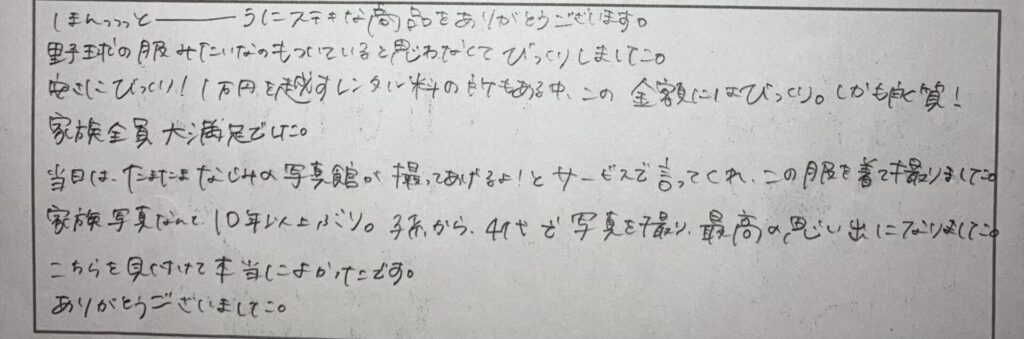 ほんっっっと―――うにステキな商品をありがとうございます。
野球の服みたいなのもついていると思わなくてびっくりしました。
安さにびっくり！1万円を越すレンタル料の所もある中、この金額にはびっくり。しかも良質！
家族全員大満足でした。
当日は、たまたまなじみの写真館が撮ってあげるよ！とサービスで言ってくれ、この服を着て撮りました。
家族写真なんて、10年以上ぶり。子、孫から、4代で写真を撮り、最高の思い出になりました。
こちらを見つけて本当によかったです。
ありがとうございました。